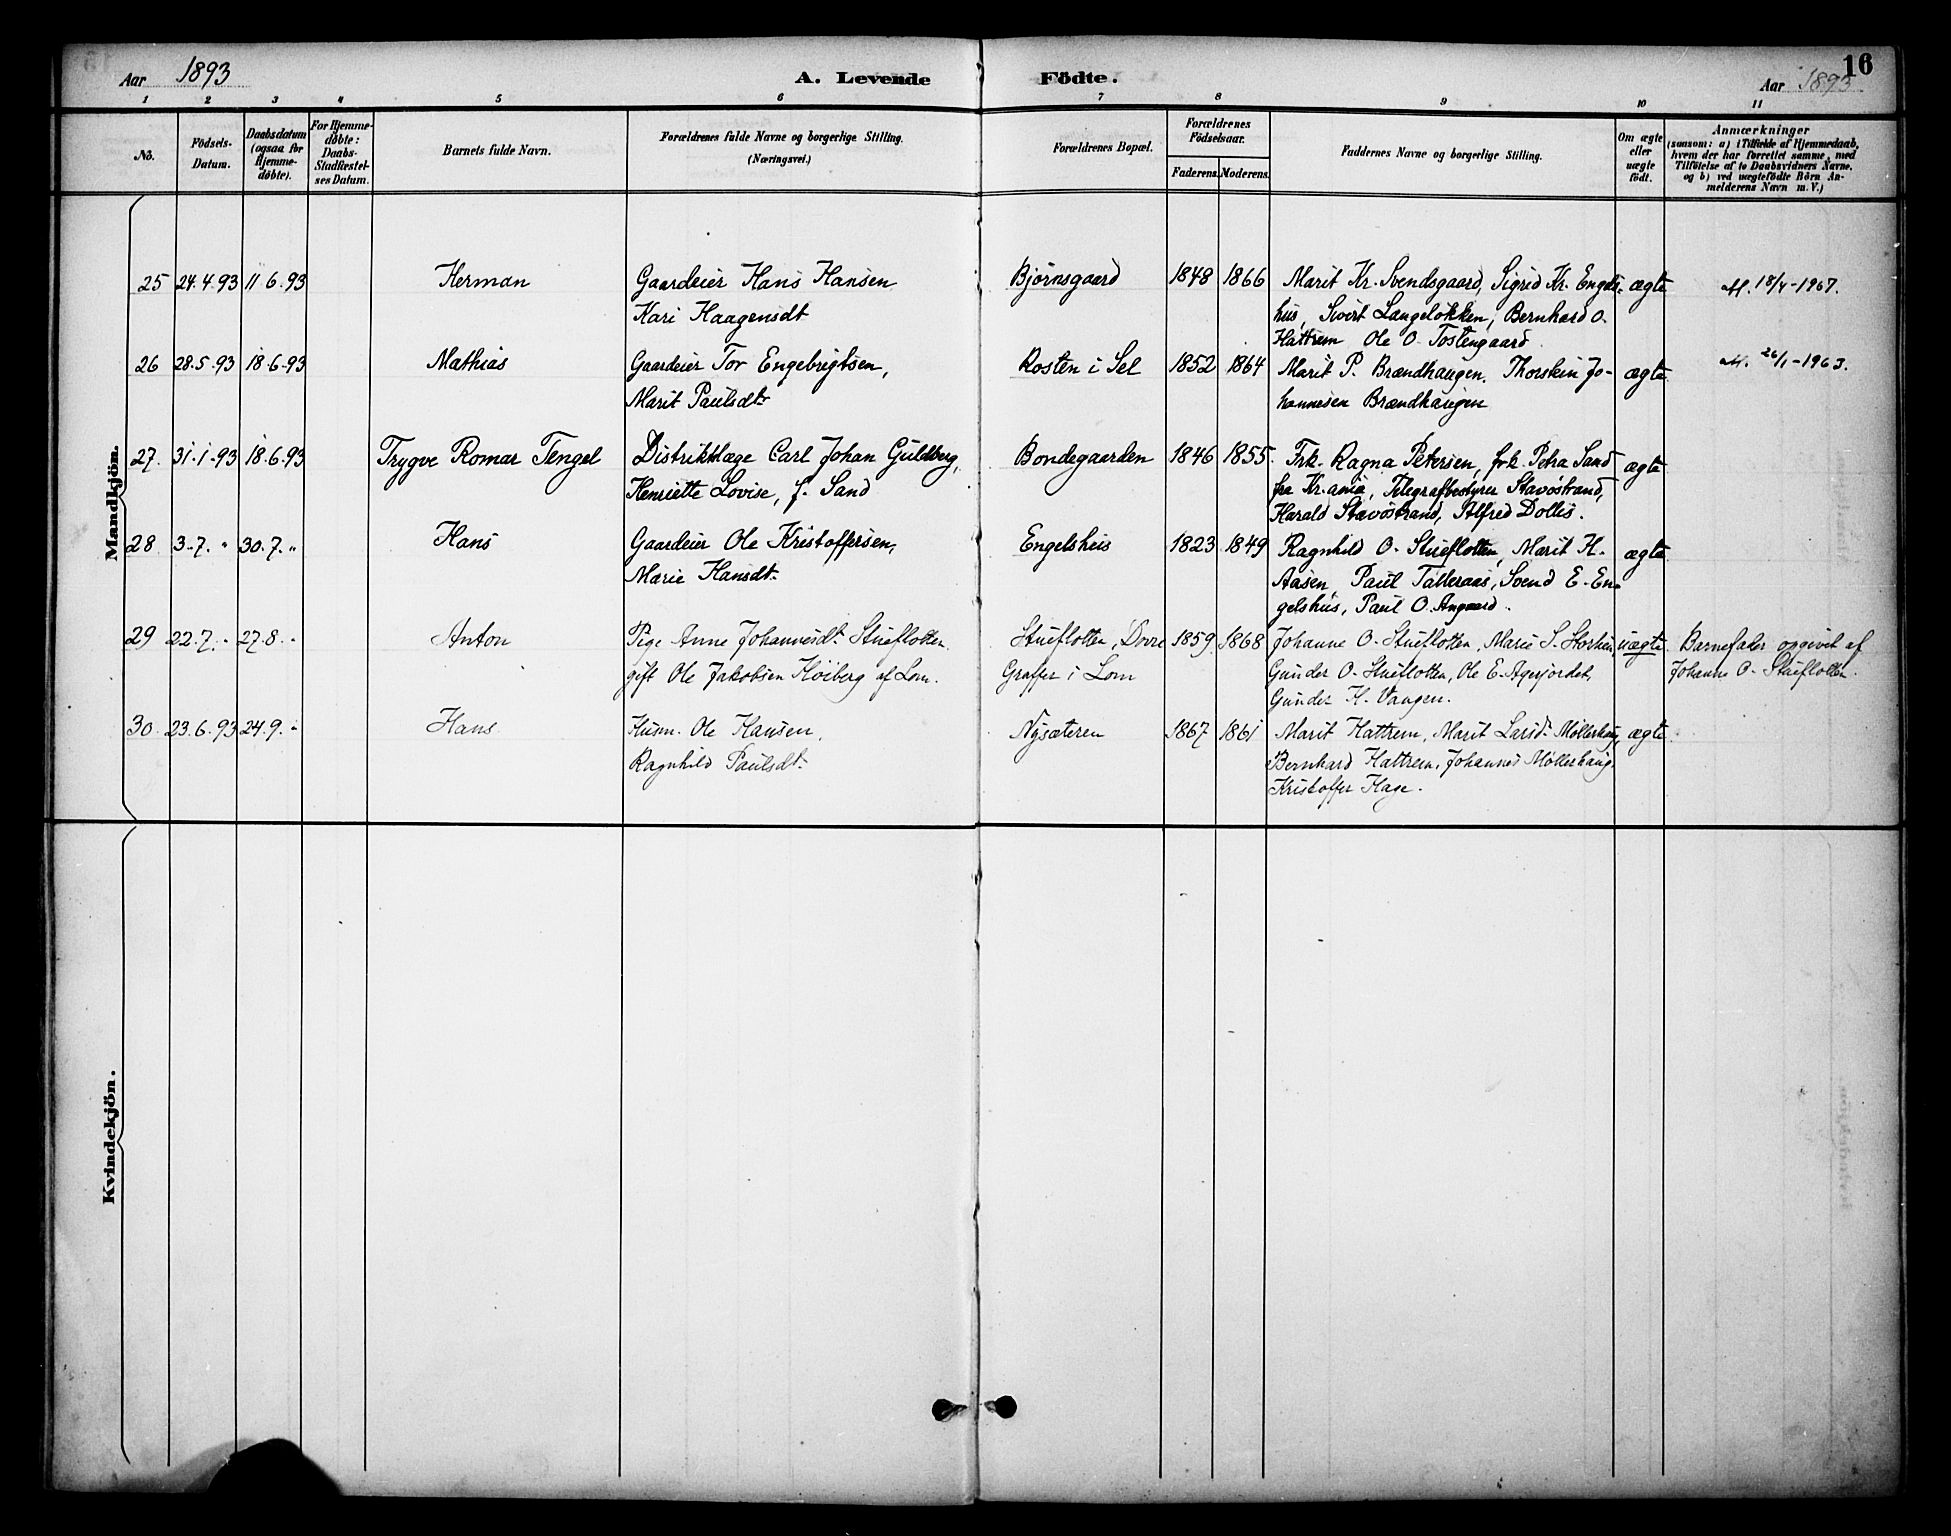 Aar 1893
A. Levende Födte.
16
Aar 1893
1 2 3 4 5 6 7 8 9 10 11
No.
Födsels-
Datum.
Daabsdatum
(ogsaa for
Hjemme-
döbte).
For Hjemme-
döbte:
Daabs-
Stadfæstel-
ses Datum.
Barnets fulde Navn.
Forældrenes fulde Navne og borgerlige Stilling.
(Næringsvei.)
Forældrenes Bopæl.
Forældrenes
Födselsaar.
Faderens. Moderens.
Faddernes Navne og borgerlige Stilling.
Om ægte
eller
uægte
födt.
Anmærkninger
(saasom: a) i Tilfælde af Hjemmedaab,
hvem der har forrettet samme, med
Tilföielse af to Daabsvidners Navne,
og b) ved uægtefödte Börn An-
melderens Navn m. V.)
Mandkjön.
25 24.4.93 11.6.93 Herman Gaardeier Hans Hansen Bjørnsgaard 1848 1866 Marit Kr. Svendsgaard, Sigrid Kr. Engels- ægte M. 18/4-1967.
Kari Haagensdt hus, Sivert Længeløkken, Bernhard O.
Hattrem Ole O. Tostengaard.
26 28.5.93 18.6.93 Mathias Gaardeier Tor Engebrigtsen, Rosten i Sel 1852 1864 Marit P. Brændhaugen. Thorstein Jo- ægte M. 26/1-1963.
Marit Paulsdt. hannesen Brændhaugen
27. 31.1.93 18.6.93 Trygve Romar Tengel Distriktslæge Carl Johan Guldberg, Bondegaarden 1846 1855 Frk. Ragna Petersen, frk. Petra Sand ægte
Henriette Lovise, f. Sand fra Kr.ania, Telegrafbestyrer Stavöstrand,
Harald Stavöstrand, Alfred Dollis.
28 3.7. " 30.7. " Hans Gaardeier Ole Kristoffersen, Engelshus 1823 1849 Ragnhild O. Stueflotten, Marit H. ægte
Marie Hansdt. Aasen, Paul Talleraas, Svend E. En-
gelshus, Paul O. Angaard.
29 22.7. " 27.8. " Anton Pige Anne Johannesdt. Stueflotten Stueflotten, Dovre 1859 1868 Johanne O. Stueflotten, Marie S. uægte. Barnefader opgivet af
gift Ole Jakobsen Höiberg af Lom. Graffer i Lom Gunder O. Stueflotten, Ole E. Agerjordet, Johanne O. Stueflotten.
Gunder H. Vangen.
30. 23.6.93 24.9. " Hans Husm. Ole Hansen, Nysæteren 1867 1861 Marit Hattrem, Marit Larsd. Möllerhaug, ægte
Ragnhild Paulsdt. Bernhard Hattrem, Johannes Möllerhaug.
Kristoffer Hage.
Kvindekjön.